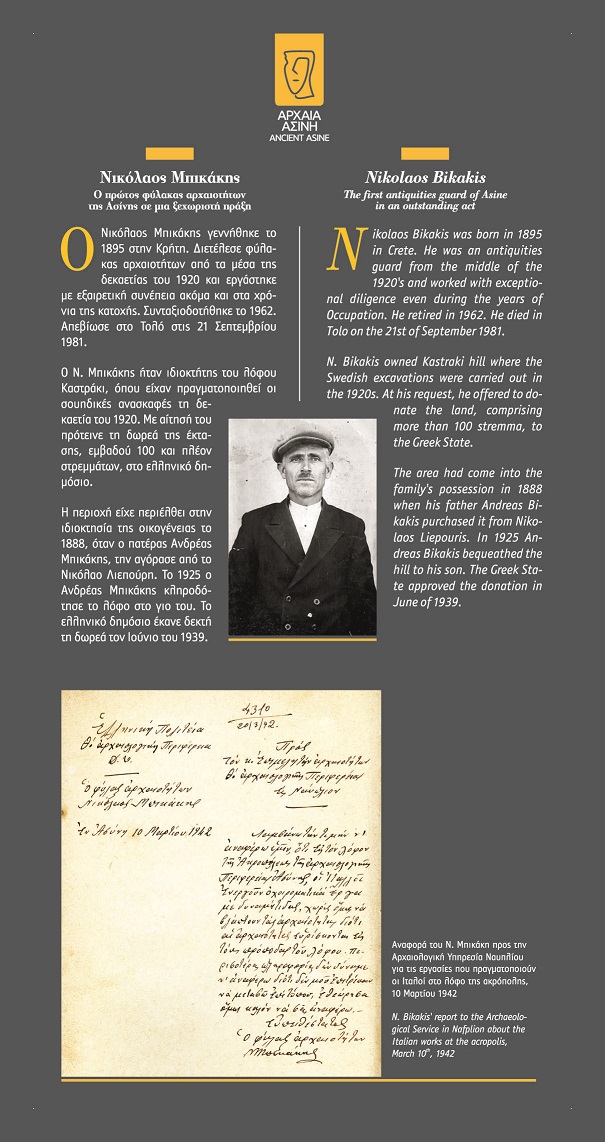 ΑΡΧΑΙΑ
ΑΣΙΝΗ
ANCIENT ASINE
Νικόλαος Μπικάκης
Ο πρώτος φύλακας αρχαιοτήτων
της Ασίνης σε μια ξεχωριστή πράξη
Ο Νικόλαος Μπικάκης γεννήθηκε το
1895 στην Κρήτη. Διετέλεσε φύλα-
κας αρχαιοτήτων από τα μέσα της
δεκαετίας του 1920 και εργάστηκε
με εξαιρετική συνέπεια ακόμα και στα χρό-
νια της κατοχής. Συνταξιοδοτήθηκε το 1962.
Απεβίωσε στο Τολό στις 21 Σεπτεμβρίου
1981.
Ο Ν. Μπικάκης ήταν ιδιοκτήτης του λόφου
Καστράκι, όπου είχαν πραγματοποιηθεί οι
σουηδικές ανασκαφές τη δε-
καετία του 1920. Με αίτησή του
πρότεινε τη δωρεά της έκτα-
σης, εμβαδού 100 και πλέον
στρεμμάτων, στο ελληνικό δη-
μόσιο.
Η περιοχή είχε περιέλθει στην
ιδιοκτησία της οικογένειας το
1888, όταν ο πατέρας Ανδρέας
Μπικάκης, την αγόρασε από το
Νικόλαο Λιεπούρη. Το 1925 ο
Ανδρέας Μπικάκης κληροδό-
τησε το λόφο στο γιο του. Το
ελληνικό δημόσιο έκανε δεκτή
τη δωρεά τον Ιούνιο του 1939.
Nikolaos Bikakis
The first antiquities guard of Asine
in an outstanding act
Nikolaos Bikakis was born in 1895
in Crete. He was an antiquities
guard from the middle of the
1920's and worked with exceptio-
nal diligence even during the years of
Occupation. He retired in 1962. He died in
Tolo on the 21st of September 1981.
N. Bikakis owned Kastraki hill where the
Swedish excavations were carried out in
the 1920s. At his request, he offered to do-
nate the land, comprising
more than 100 stremma, to
the Greek State.
The area had come into the
family's possession in 1888
when his father Andreas Bi-
kakis purchased it from Niko-
laos Liepouris. In 1925 An-
dreas Bikakis bequeathed the
hill to his son. The Greek Sta-
te approved the donation in
June of 1939.
4310
20/3/42.
Ἑλληνική Πολιτεία
Θ' ἀρχαιολογική Περιφέρεια
Ὁ φύλαξ ἀρχαιοτήτων
Νικόλαος Μπικάκης
Ἐν Ἀσίνῃ 10 Μαρτίου 1942
Πρός
Τόν κ. Ἐπιμελητήν ἀρχαιοτήτων
Θ' ἀρχαιολογικῆς Περιφερείας
Ναύπλιον
Λαμβάνω τήν τιμήν ν'
ἀναφέρω ὅτι εἰς τόν λόφον
τῆς Ἀκροπόλεως τῆς ἀρχαιολογικῆς
Περιφερείας Ἀσίνης, οἱ Ἰταλοί
ἐνεργοῦν ὀχυρωματικά ἔργα
με δυναμίτιδας, χωρίς ὅμως νά
βλάπτουν τάς ἀρχαιότητας διότι
αἱ ἀρχαιότητες εὑρίσκονται εἰς
τούς πρόποδας τοῦ λόφου. Πε-
ρισσοτέρας πληροφορίας δέν δύναμαι
ν' ἀναφέρω διότι δέν μοῦ ἐπιτρέπουν
νά μεταβῶ ἐπί τόπου, ἐθεώρησα
ὅμως νά σᾶς ἀναφέρω.
Εὐπειθέστατος
Ὁ φύλαξ ἀρχαιοτήτων
Ν Μπικάκης
Αναφορά του Ν. Μπικάκη προς την
Αρχαιολογική Υπηρεσία Ναυπλίου
για τις εργασίες που πραγματοποιούν
οι Ιταλοί στο λόφο της ακρόπολης,
10 Μαρτίου 1942
N. Bikakis' report to the Archaeolo-
gical Service in Nafplion about the
Italian works at the acropolis,
March 10th, 1942